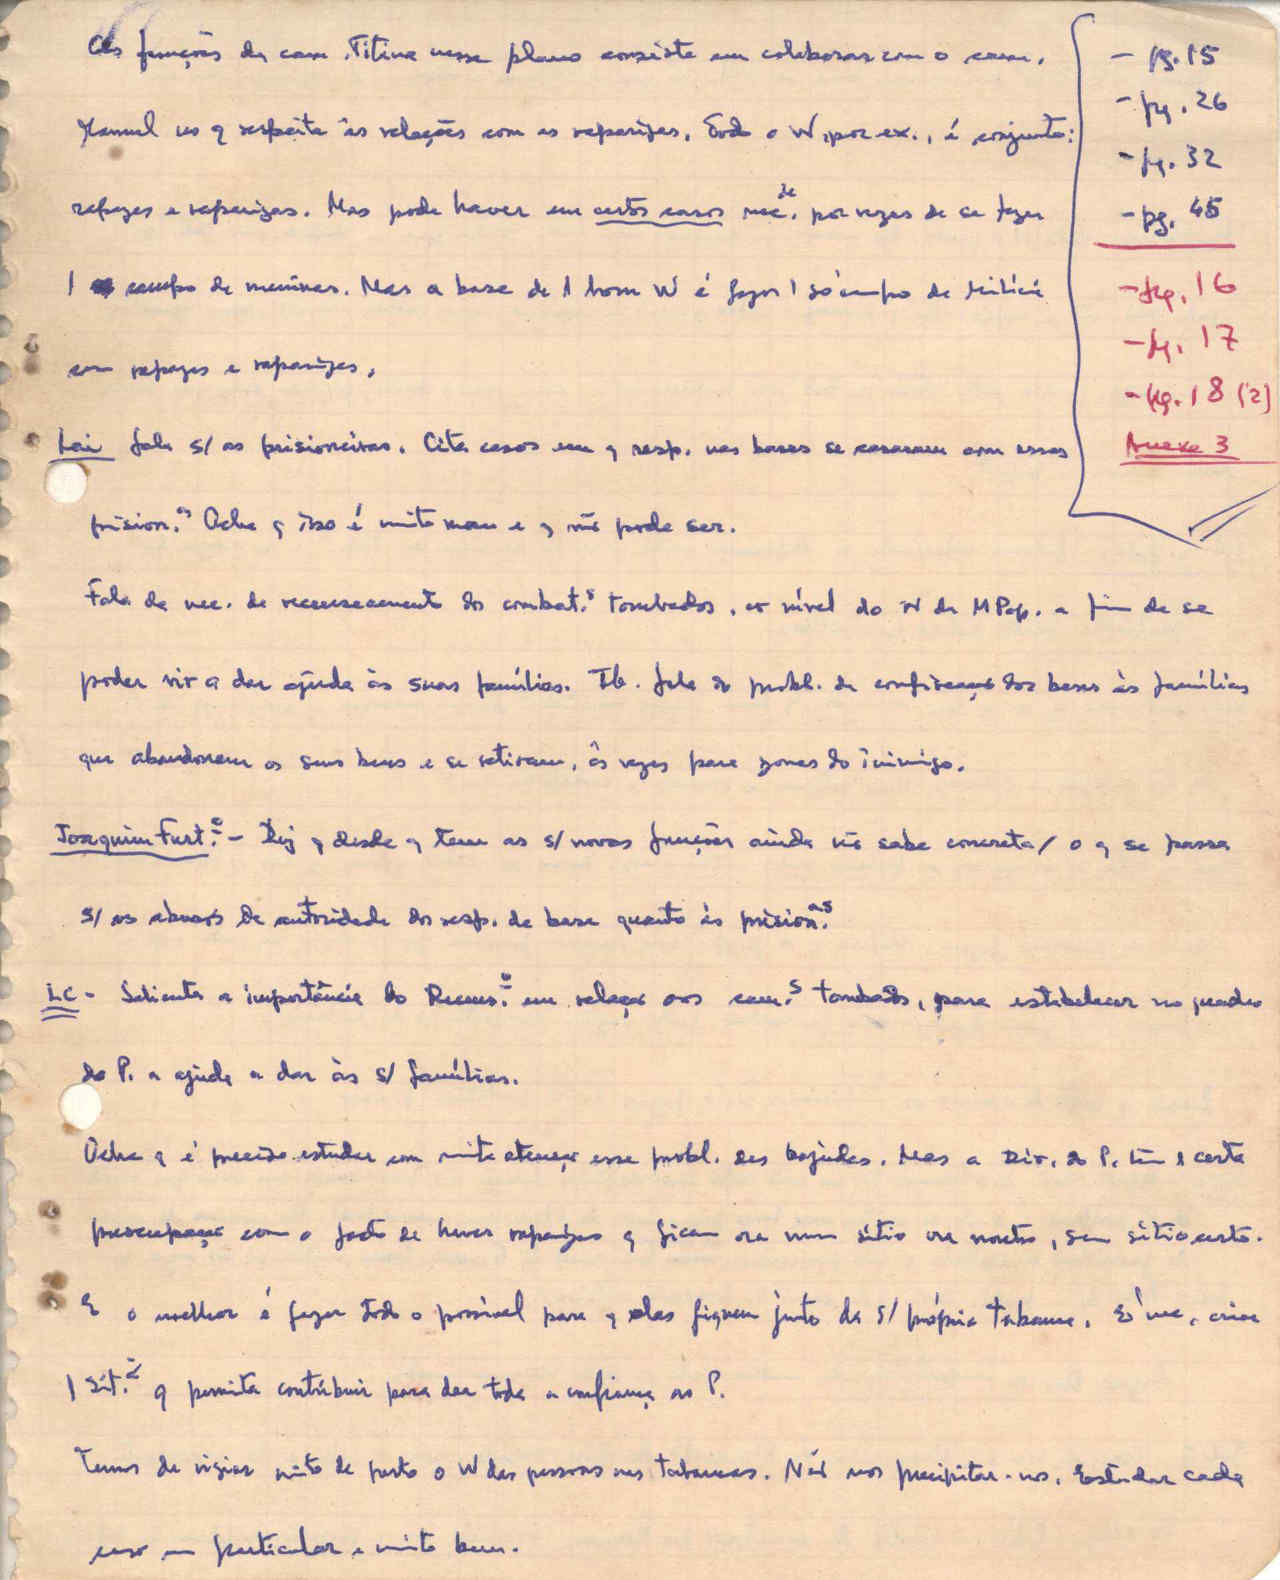 As funções da cam. Titina nesse plano consiste em colaborar com o cam.
Manuel no q respeita às relações com as raparigas. Todo o W, por ex., é conjunto:
rapazes e raparigas. Mas pode haver em certos casos nec.de por vezes de se fazer
1 campo de meninas. Mas a base de 1 bom W é fazer 1 só campo de Milícia
com rapazes e raparigas.
Lai fala s/ as prisioneiras. Cita casos em q resp. nas bases se casaram com essas
prision.as Acha q isso é muito mau e q não pode ser.
Fala da nec. de recenseamento dos combat.s tombados, ao nível do W da MPop. a fim de se
poder vir a dar ajuda às suas famílias. Tb. fala do probl. da confiscação dos bens às famílias
que abandonam os seus bens e se retiram, às vezes para zonas do inimigo.
Joaquim Furt.o - Diz q desde q tem as s/ novas funções ainda não sabe concreta/ o q se passa
s/ os abusos de autoridade dos resp. de base quanto às prision.as
LC - Salienta a importância do Recens.o em relação aos cam.s tombados, para estabelecer no quadro
do P. a ajuda a dar às s/ famílias.
Acha q é preciso estudar com muita atenção esse probl. das bajudas. Mas a Dir. do P. tem 1 certa
preocupação com o facto de haver raparigas q ficam ora num sítio ora noutro, sem sítio certo.
E o melhor é fazer todo o possível para q elas fiquem junto da s/ própria tabanca. É nec. criar
1 sit.ão q permita contribuir para dar toda a confiança ao P.
Temos de vigiar muito de perto o W das pessoas nas tabancas. Não nos precipitar-nos. Estudar cada
caso em particular e muito bem.
- pg. 15
- pg. 26
- pg. 32
- pg. 45
- pg. 16
- pg. 17
- pg. 18 (2)
Anexo 3